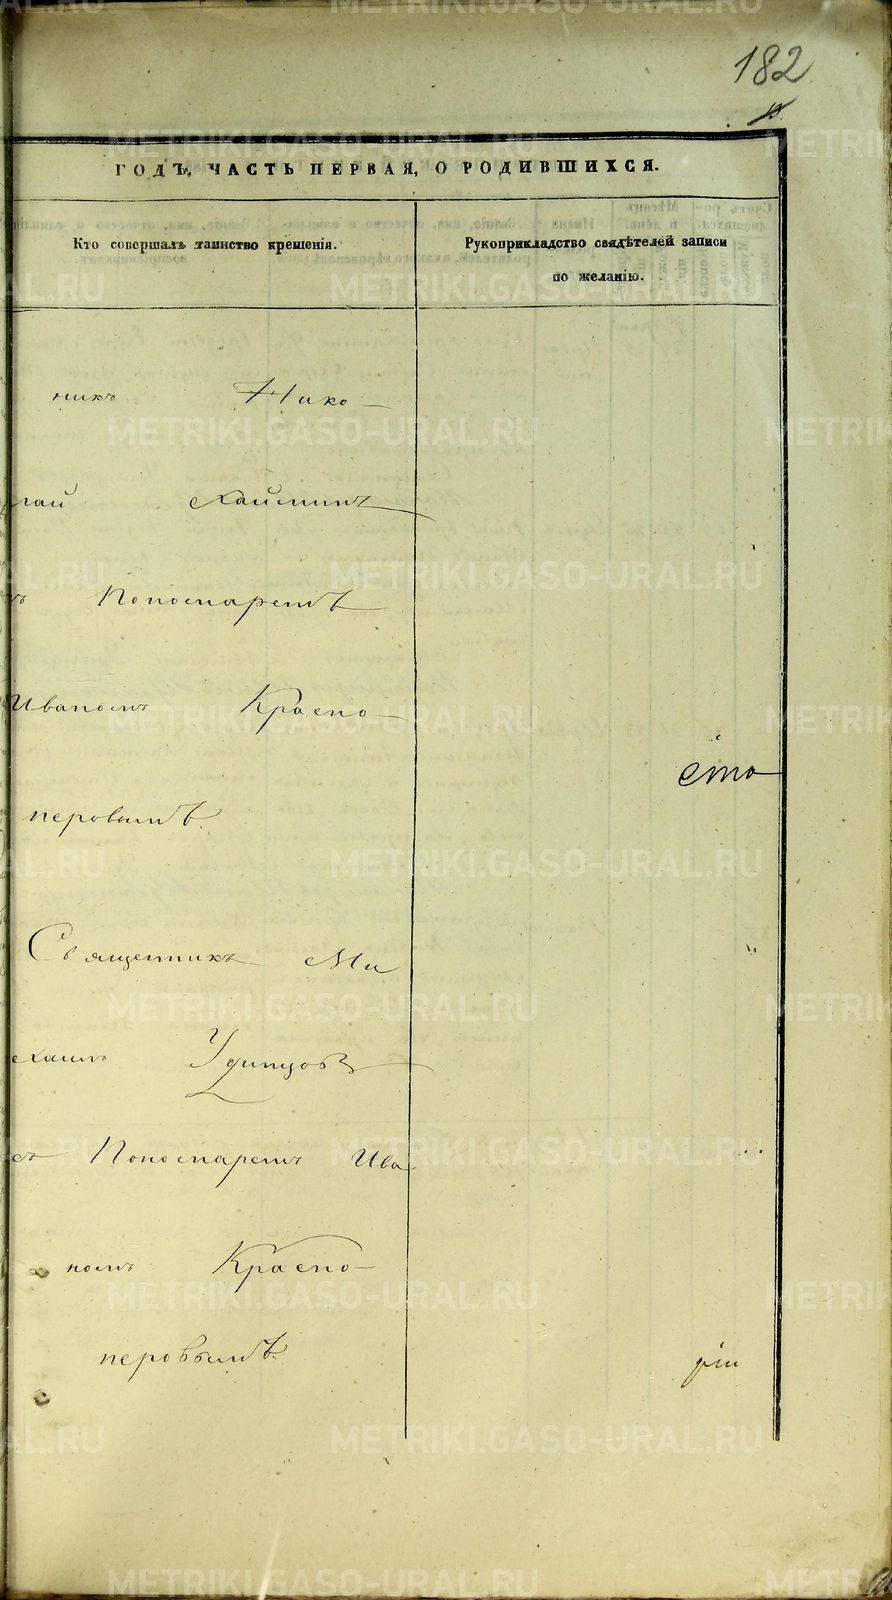 182
ГОДЪ, ЧАСТЬ ПЕРВАЯ, О РОДИВШИХСЯ.
Кто совершалъ таинство крещенія.
Рукоприкладство свидѣтелей записи
по желанію.
никъ Нико-
лай Хайминъ
Пономаремъ
Иваномъ Красно-
сто
перовымъ.
Священникъ Ми
хаилъ Удинцовъ
съ Пономаремъ Ива
номъ Красно-
перовымъ.
METRIKI.GASO-URAL.RU